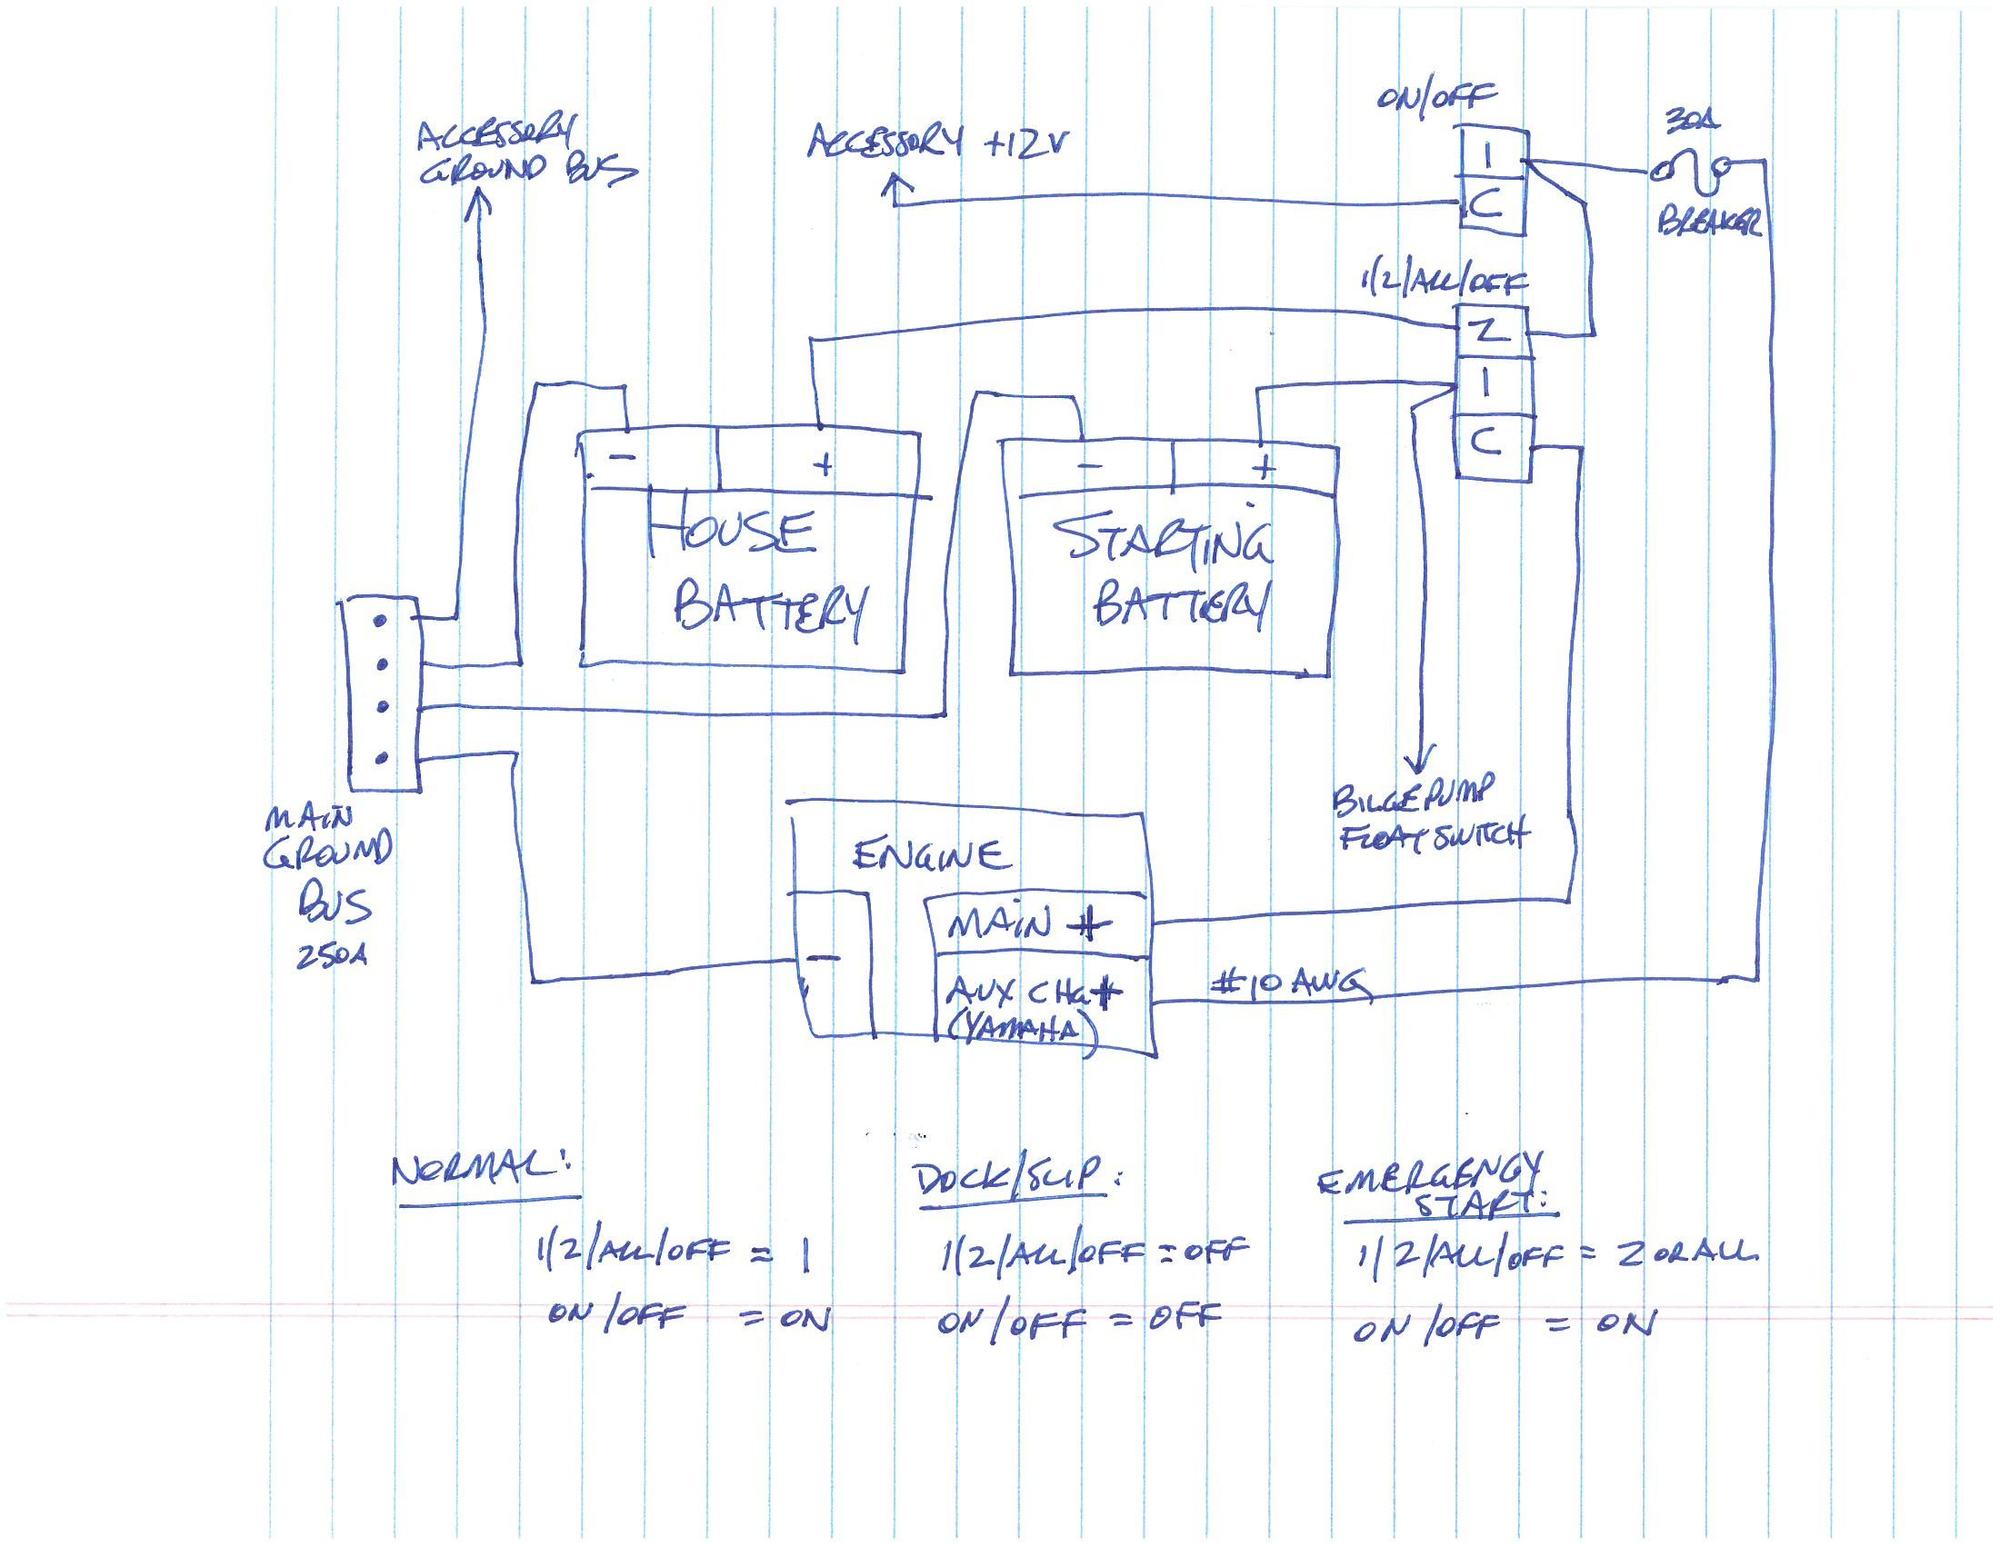 ON/OFF
30A
1
C
BREAKER
ACCESSORY
GROUND BUS
ACCESSORY +12V
1/2/ALL/OFF
2
1
C
- +
HOUSE
BATTERY
- +
STARTING
BATTERY
BILGE PUMP
FLOAT SWITCH
MAIN
GROUND
BUS
250A
ENGINE
MAIN +
-
AUX CHG +
(YAMAHA)
#10 AWG
NORMAL:
1/2/ALL/OFF = 1
ON/OFF = ON
DOCK/SLIP:
1/2/ALL/OFF = OFF
ON/OFF = OFF
EMERGENCY
START:
1/2/ALL/OFF = 2 OR ALL
ON/OFF = ON